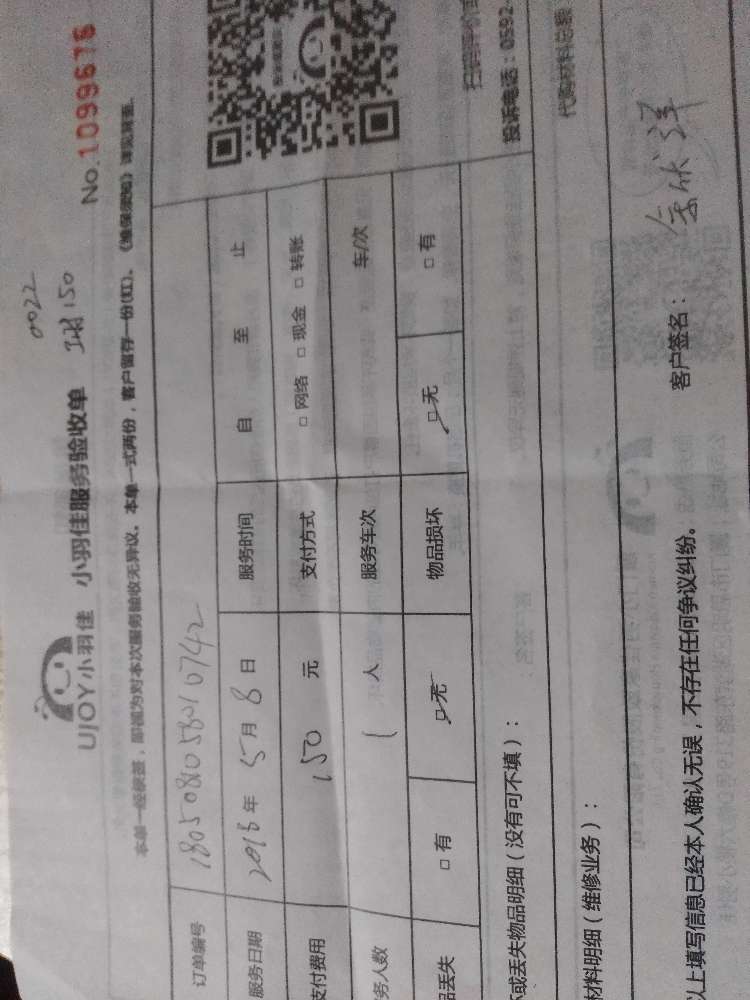 0022
UJOY小羽佳 小羽佳服务验收单 150 No.1099676
本单一经梭签,即视为对本次服务验收无异议。本单一式两份,客户留存一份(红)。《维保须知》详见背面。
订单编号 1805081058010742
服务日期 2018年5月8日 服务时间 自 至 止
支付费用 150 元 支付方式 □ 网络 □ 现金 □ 转账
务人数 1 人 服务车次 车/次
品丢失 □ 有 □ 无 物品损坏 □ 无 □ 有
坏或丢失物品明细(没有可不填):
材料明细(维修业务):
以上填写信息已经本人确认无误,不存在任何争议纠纷。 客户签名:
投诉电话:0592-
代购材料总额